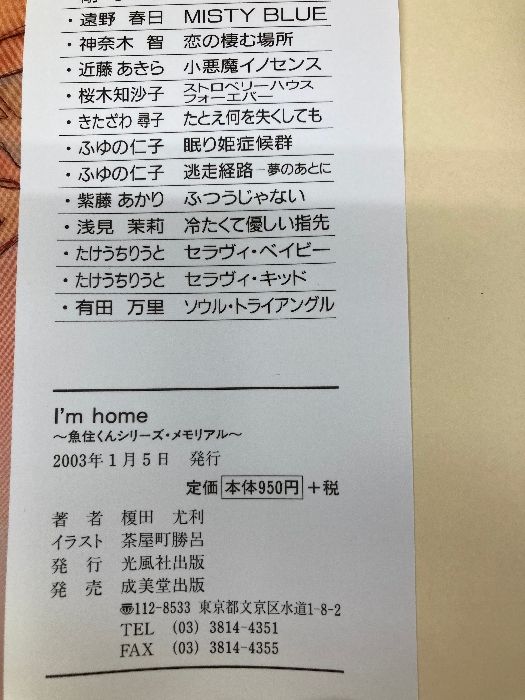 ・遠野 春日 MISTY BLUE
・神奈木 智 恋の棲む場所
・近藤 あきら 小悪魔イノセンス
・桜木知沙子 ストロベリーハウス
フォーエバー
・きたざわ 尋子 たとえ何を失くしても
・ふゆの仁子 眠り姫症候群
・ふゆの仁子 逃走経路－夢のあとに
・紫藤 あかり ふつうじゃない
・浅見 茉莉 冷たくて優しい指先
・たけうちりうと セラヴィ・ベイビー
・たけうちりうと セラヴィ・キッド
・有田 万里 ソウル・トライアングル
I'm home
～魚住くんシリーズ・メモリアル～
2003年1月5日 発行
定価 本体950円 +税
著者 榎田 尤利
イラスト 茶屋町勝呂
発行 光風社出版
発売 成美堂出版
〠112-8533 東京都文京区水道1-8-2
TEL (03) 3814-4351
FAX (03) 3814-4355